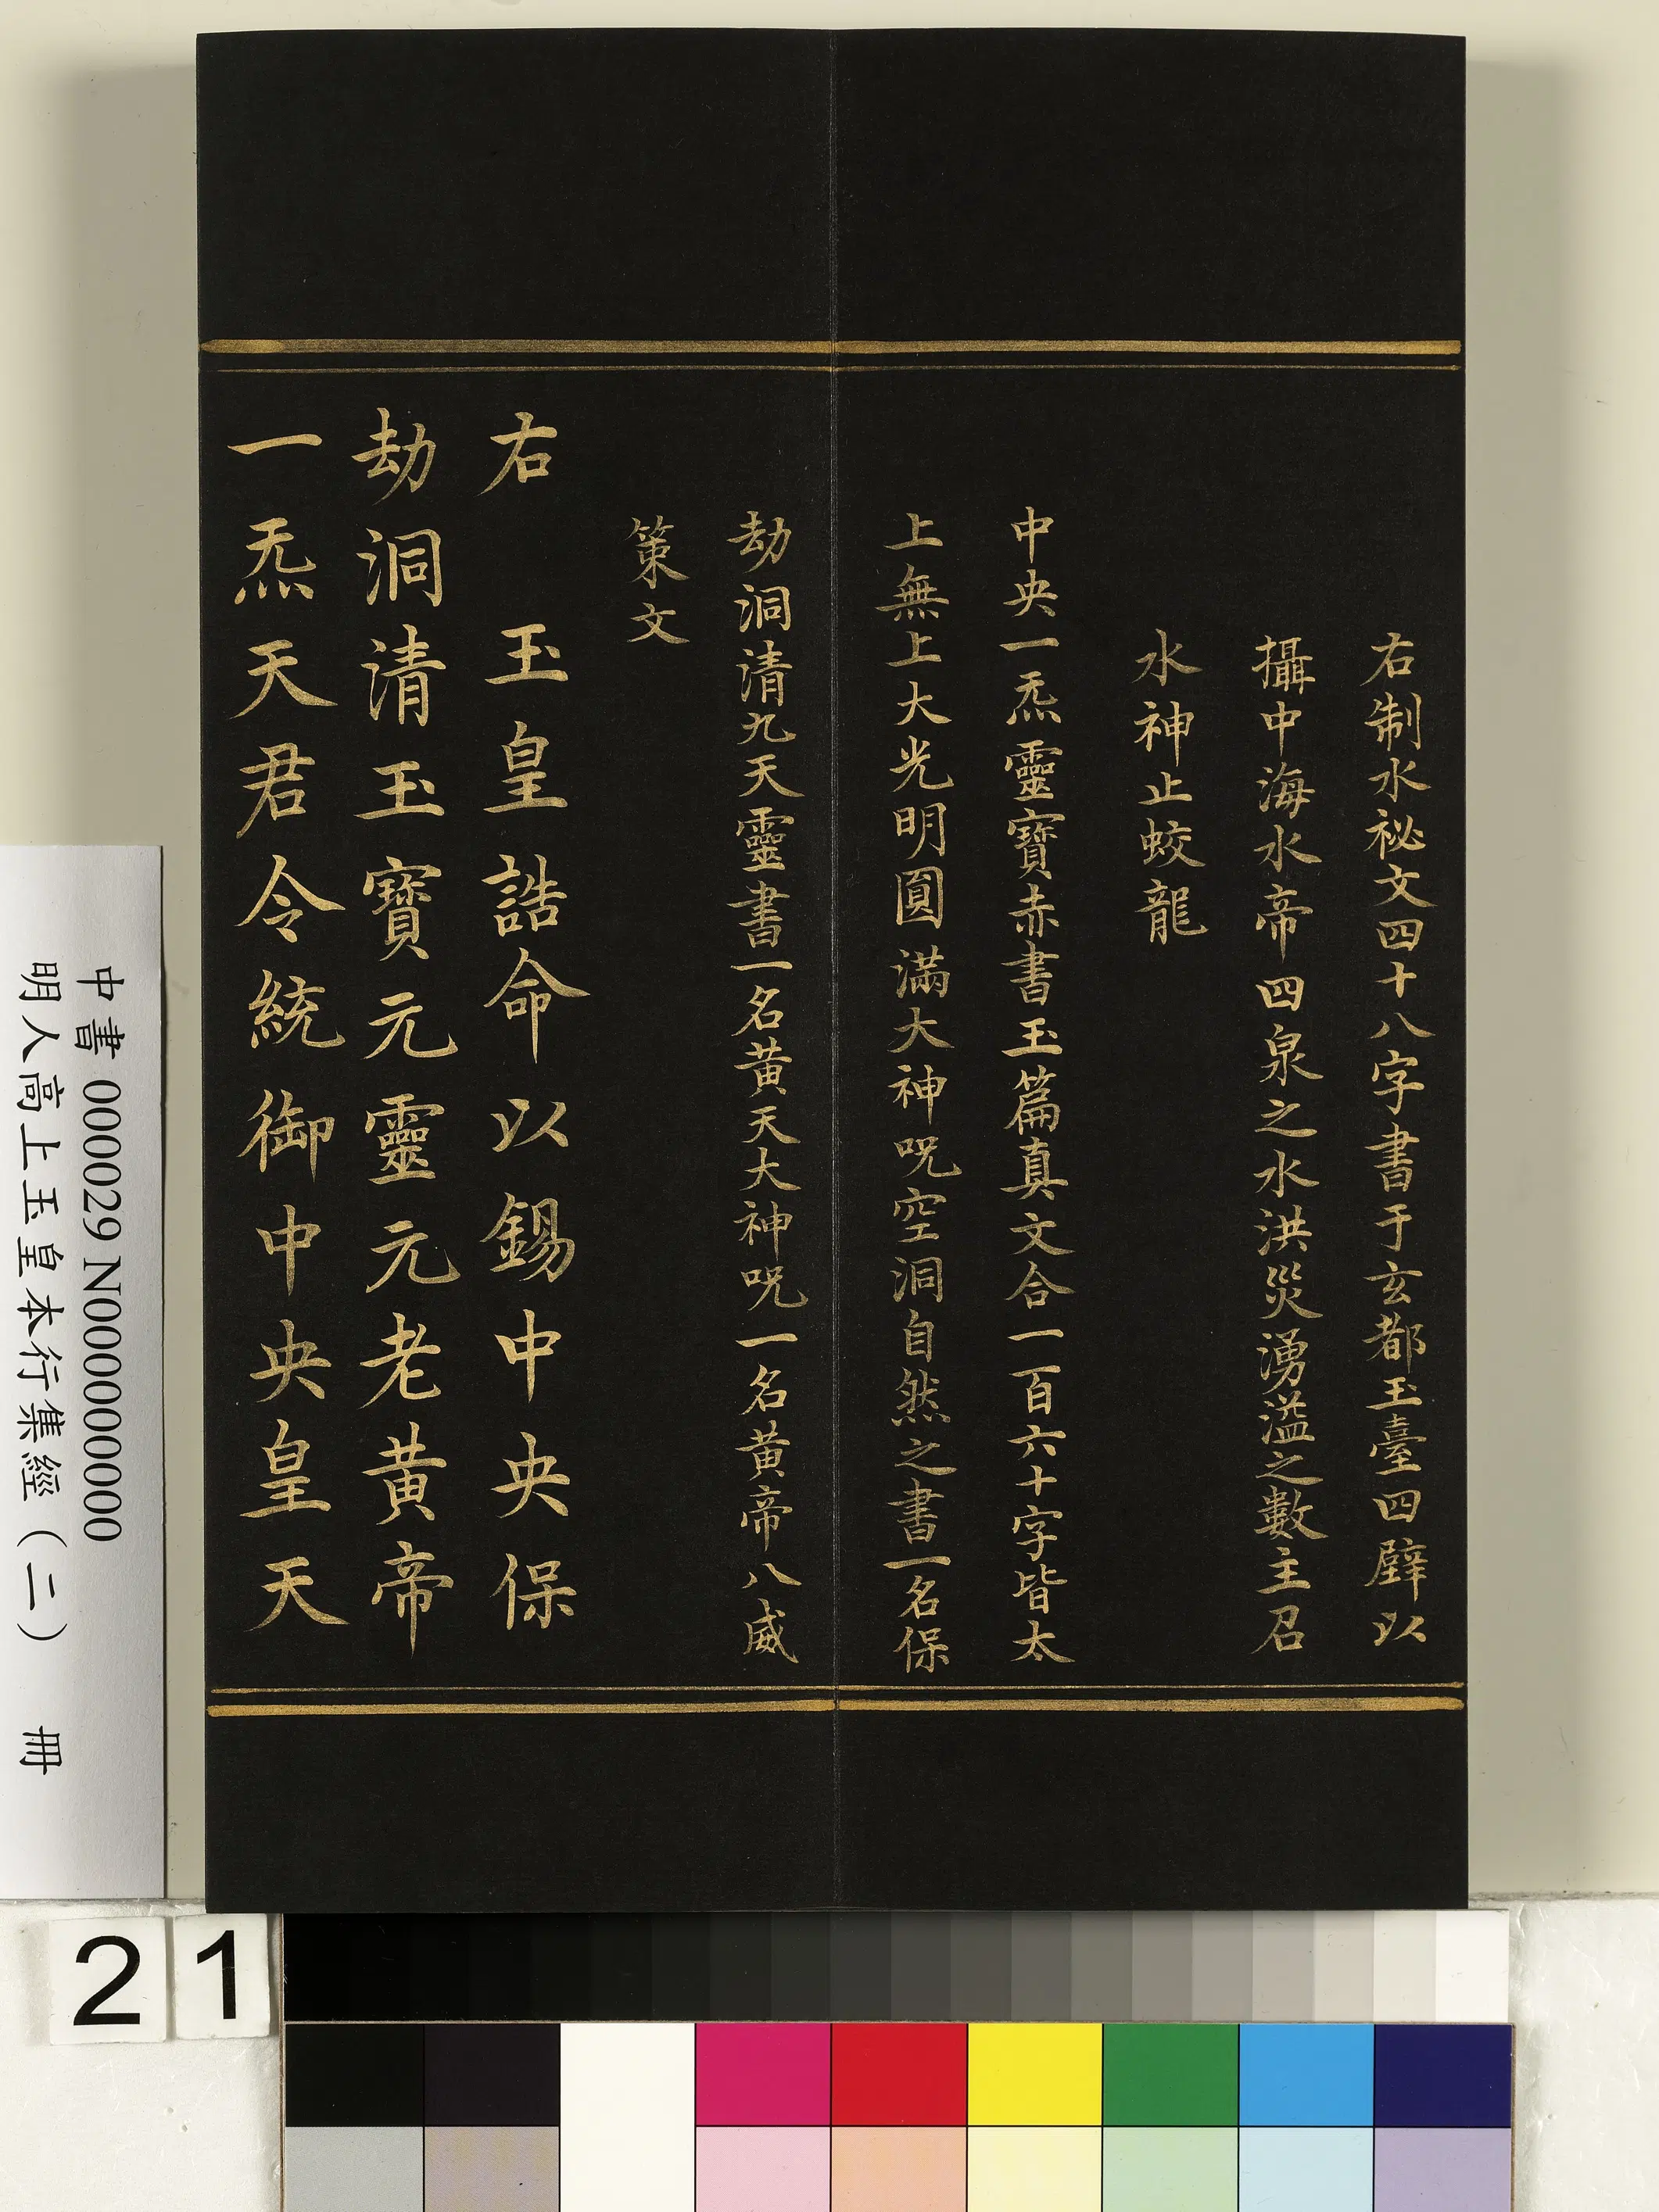 右制水祕文四十八字書于玄都玉臺四壁以
攝中海水帝四泉之水洪災湧溢之數主召
水神止蛟龍
中央一炁靈寶赤書玉篇真文合一百六十字皆太
上無上上大光明圓滿大神呪空洞自然之書一名保
劫洞清九天靈書一名黄天大神呪一名黄帝八威
策文
右　玉皇誥命以錫中央保
劫洞清玉寶元靈元老黄帝
一炁天君令統御中央皇天
中書 000029 N000000000
明人高上玉皇本行集經（二）　冊
21